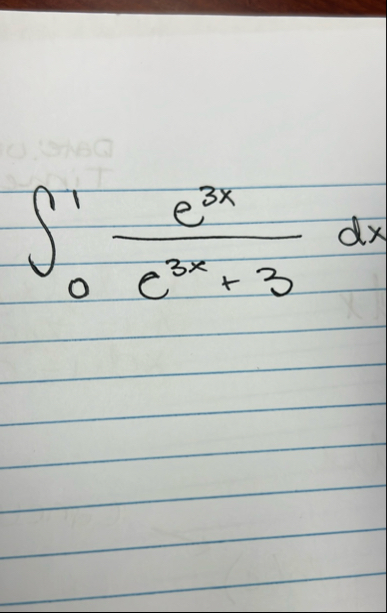 ∫₀¹ e^{3x} / (e^{3x} + 3) dx